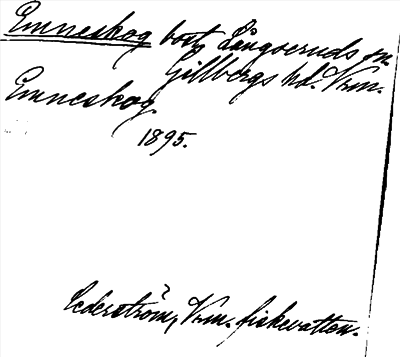 Emneskog bost, Långseruds sn.
Gillbergs hd. Vrm.
Emneskog
1895.
Cederström, Vrm. fiskevatten.